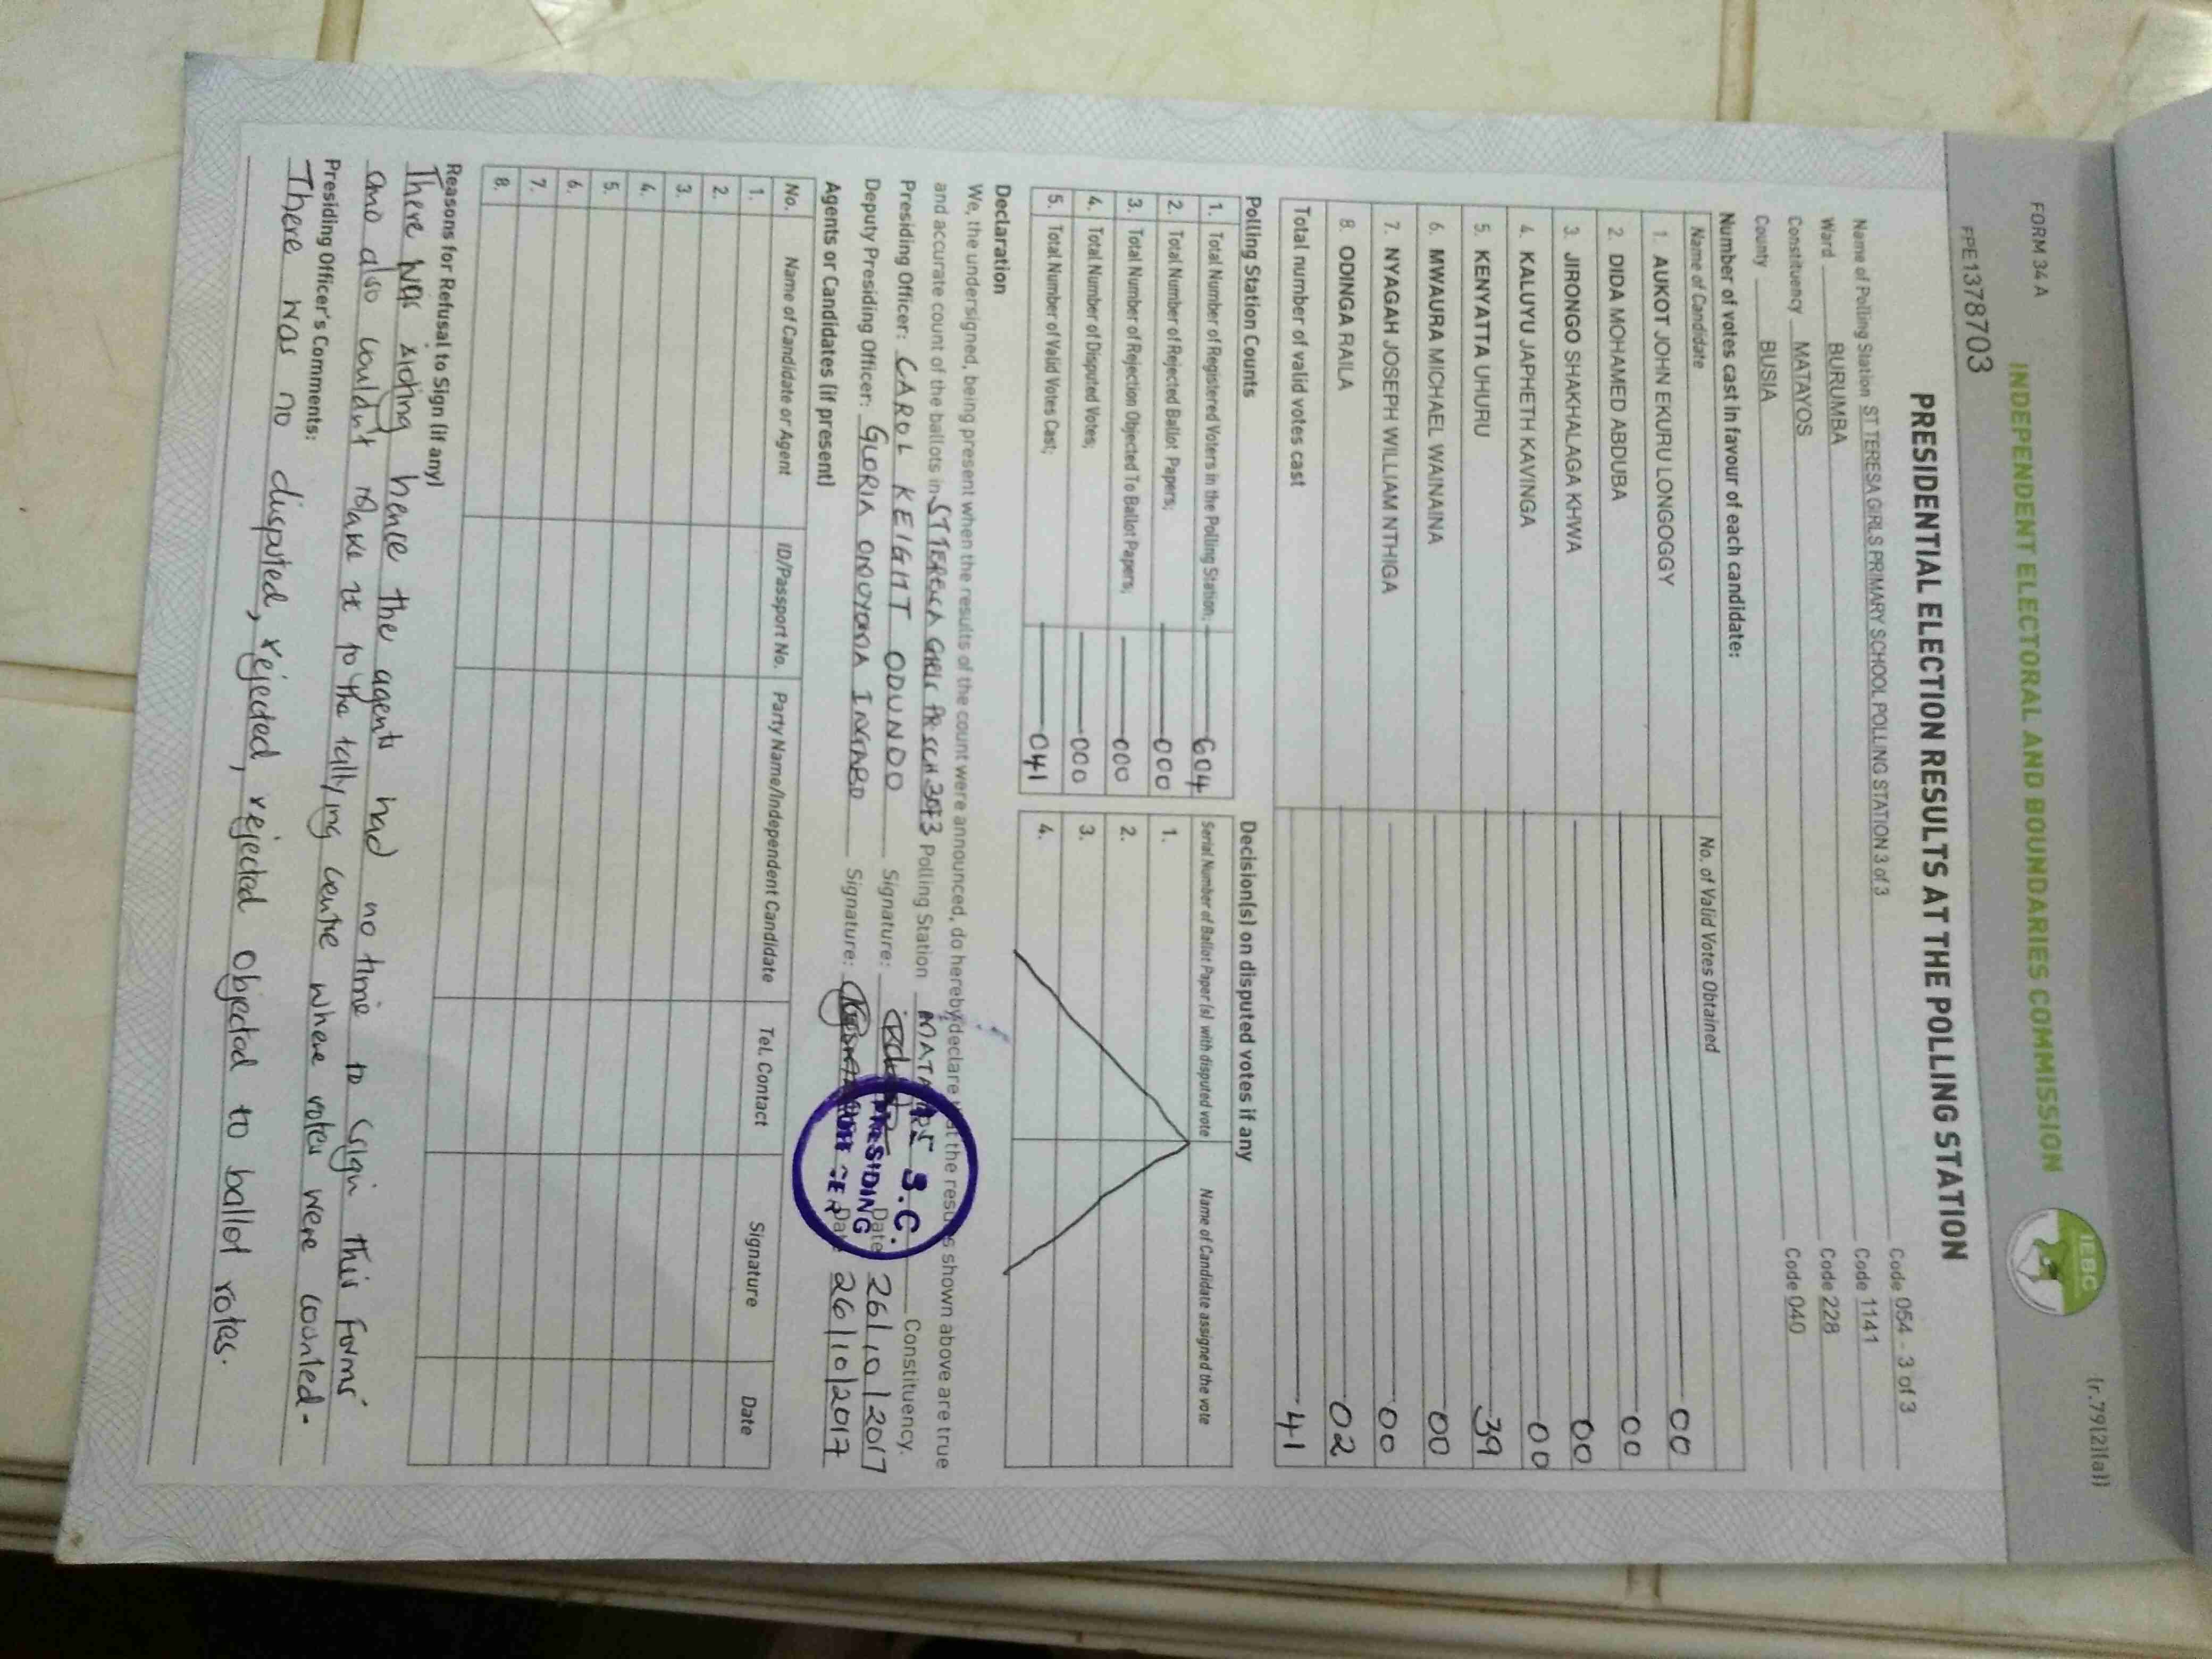 FORM 34 A
(r.79(2)(a))
INDEPENDENT ELECTORAL AND BOUNDARIES COMMISSION
IEBC
FPE1378703
PRESIDENTIAL ELECTION RESULTS AT THE POLLING STATION
Name of Polling Station ST TERESA GIRLS PRIMARY SCHOOL POLLING STATION 3 of 3 Code 054 - 3 of 3
Ward BURUMBA Code 1141
Constituency MATAYOS Code 228
County BUSIA Code 040
Number of votes cast in favour of each candidate:
Name of Candidate No. of Valid Votes Obtained
1. AUKOT JOHN EKURU LONGOGGY 00
2. DIDA MOHAMED ABDUBA 00
3. JIRONGO SHAKHALAGA KHWA 00
4. KALUYU JAPHETH KAVINGA 00
5. KENYATTA UHURU 39
6. MWAURA MICHAEL WAINAINA 00
7. NYAGAH JOSEPH WILLIAM NTHIGA 00
8. ODINGA RAILA 02
Total number of valid votes cast 41
Polling Station Counts
1. Total Number of Registered Voters in the Polling Station; 604
2. Total Number of Rejected Ballot Papers; 000
3. Total Number of Rejection Objected To Ballot Papers; 000
4. Total Number of Disputed Votes; 000
5. Total Number of Valid Votes Cast; 041
Decision(s) on disputed votes if any
Serial Number of Ballot Paper (s) with disputed vote Name of Candidate assigned the vote
1.
2.
3.
4.
Declaration
We, the undersigned, being present when the results of the count were announced, do hereby declare that the results shown above are true
and accurate count of the ballots in ST TERESA GIRLS PR SCH 3 of 3 Polling Station MATAYOS Constituency.
Presiding Officer: CAROL KEIGHT ODUNDO Signature: Date 26/10/2017
Deputy Presiding Officer: GLORIA Signature: Date 26/10/2017
PRESIDING
Agents or Candidates (if present)
No. Name of Candidate or Agent ID/Passport No. Party Name/Independent Candidate Tel. Contact Signature Date
1.
2.
3.
4.
5.
6.
7.
8.
Reasons for Refusal to Sign (if any)
There was rioting hence the agents had no time to sign this forms
and also couldn't make it to the tallying centre where votes were counted.
Presiding Officer's Comments:
There was no disputed, rejected, rejected objected to ballot votes.